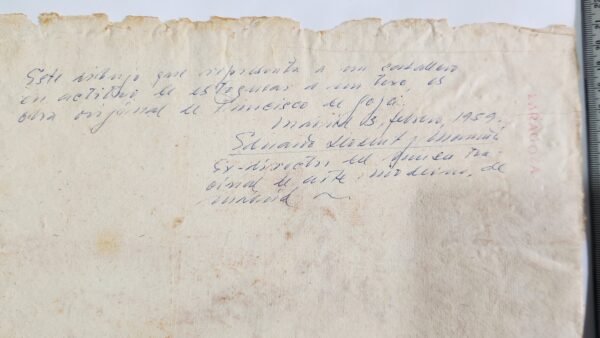 Este dibujo que representa a un caballero
en actitud de estoquear a un toro, es
obra original de Francisco de Goya.
Madrid 13, febrero, 1959.
Eduardo Llosent y Marañón
Ex-director del museo na
cional de arte moderno, de
madrid